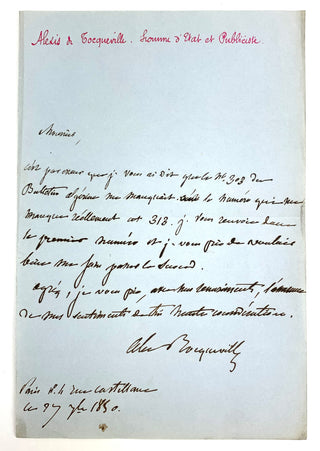 Alexis de Tocqueville. Homme d'Etat et Publiciste.
Monsieur,
c'est par erreur que je vous ai dit que le No 303 du
Bulletin me manquait. le numéro qui me
manque réellement est 313. je vous renvoie donc
le premier numéro et je vous prie de vouloir
bien me faire passer le second.
Agréez, je vous prie, avec mes remerciments, l'assurance
de mes sentiments de très haute considération.
Alex Tocqueville
Paris rue Castellane
ce 27 1850.